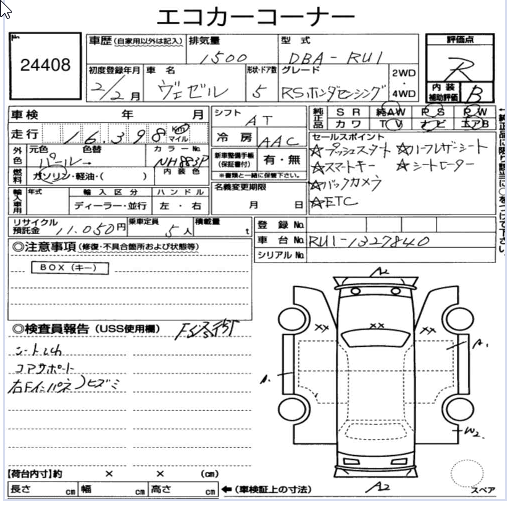 エコカーコーナー
No.
24408
車歴 (自家用以外は記入)
排気量 1500
型式 DBA-RU1
評価点 R
初度登録年月 2/2月
車名 ヴェゼル
形状・ドア数 5
グレード RSホンダセンシング
2WD
4WD
内装補助評価 B
車検 年 月
シフト AT
純正品 SR 純AW R_S R_W
カワ TV ナビ エアB
走行 16,398 km マイル
冷房 AAC
セールスポイント
☆プッシュスタート ☆ハーフレザーシート
☆スマートキー ☆シートヒーター
☆バックカメラ
☆ETC
外色 元色 パール 色替
カラーNo. NH883P
内装色
燃料 ガソリン・軽油・( )
新車整備手帳(保証書付) 有・無
※書類と一緒に保管下さい。
名義変更期限
月 日
輸入車用 年式 輸入区分 ハンドル
ディーラー・並行 左・右
リサイクル預託金 11.050円
乗車定員 5人
積載量 t
登録No.
車台No. RU1-1327840
シリアルNo.
◎注意事項 (修復・不具合箇所および状態等)
BOX(キー)
◎検査員報告 (USS使用欄)
シートしわ
コアサポート
右Fインパネ ヒズミ
A2
×× ×× ××
A1
A1
W2
A2
スペア
【荷台内寸】約 × × (cm)
長さ cm 幅 cm 高さ cm ←(車検証上の寸法)